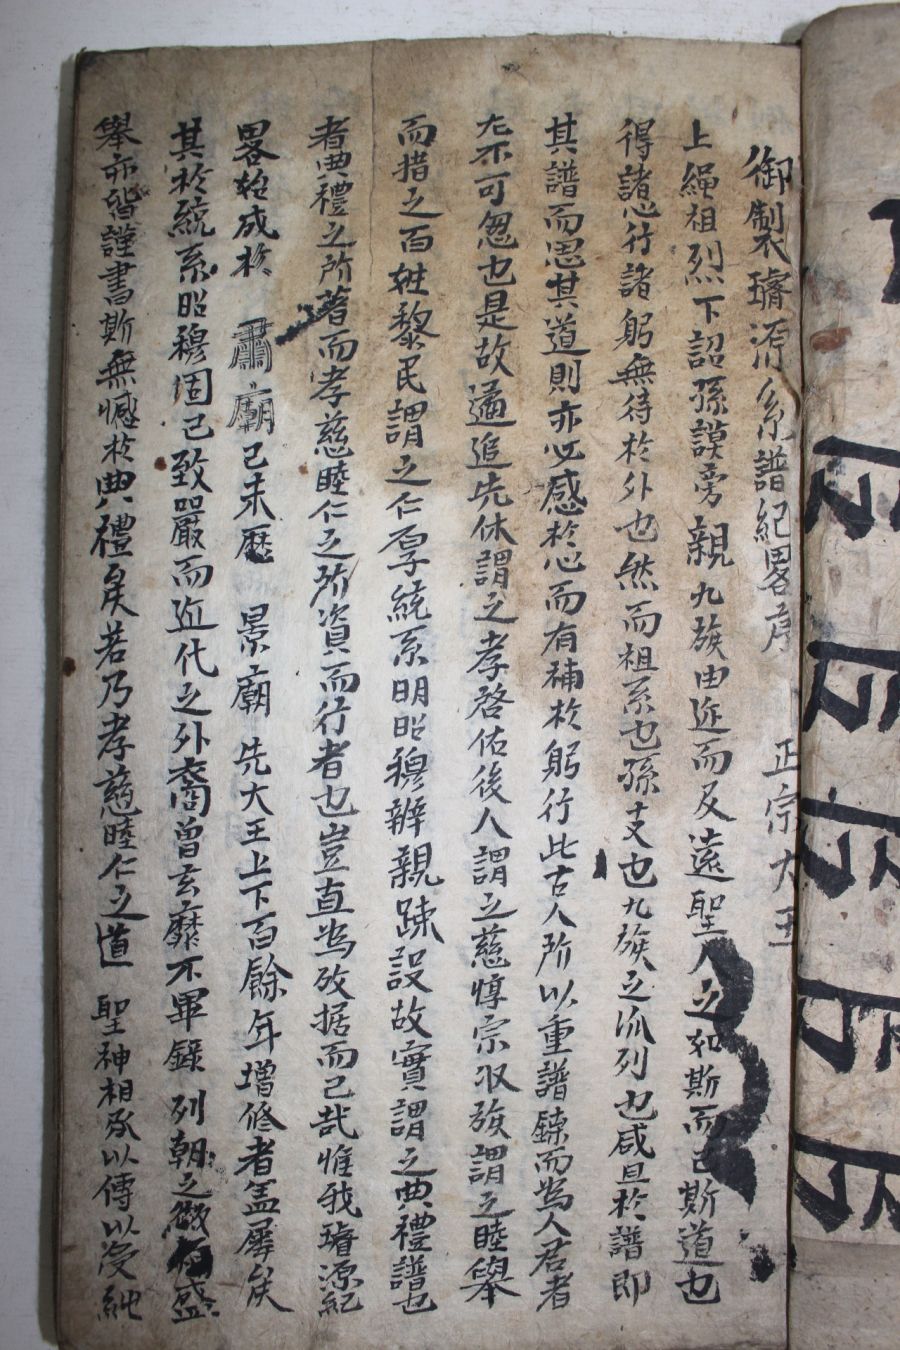 御製璿源系譜紀畧序 正宗大王
上繩祖烈下詔孫謨旁親九族由近而及遠聖人之如斯而已斯道也
得諸心行諸躬無待於外也然而祖系也孫支也九族之派列也咸具於譜即
其譜而思其道則亦必感於心而有補於躬行此古人所以重譜錄而爲人君者
尤不可忽也是故遹追先休謂之孝啓佑後人謂之慈惇宗收族謂之睦舉
而措之百姓黎民謂之仁厚統系明昭穆辨親踈設故實謂之典禮譜也
者典禮之所著而孝慈睦仁之所資而行者也豈直爲攷据而已哉惟我璿源紀
畧始成於 肅廟己未歷 景廟 先大王上下百餘年增修者盖屢矣
其於統系昭穆固已致嚴而近代之外裔曾玄靡不畢錄 列朝之徽 盛
舉亦皆謹書斯無憾於典禮矣若乃孝慈睦仁之道 聖神相承以傳以受純